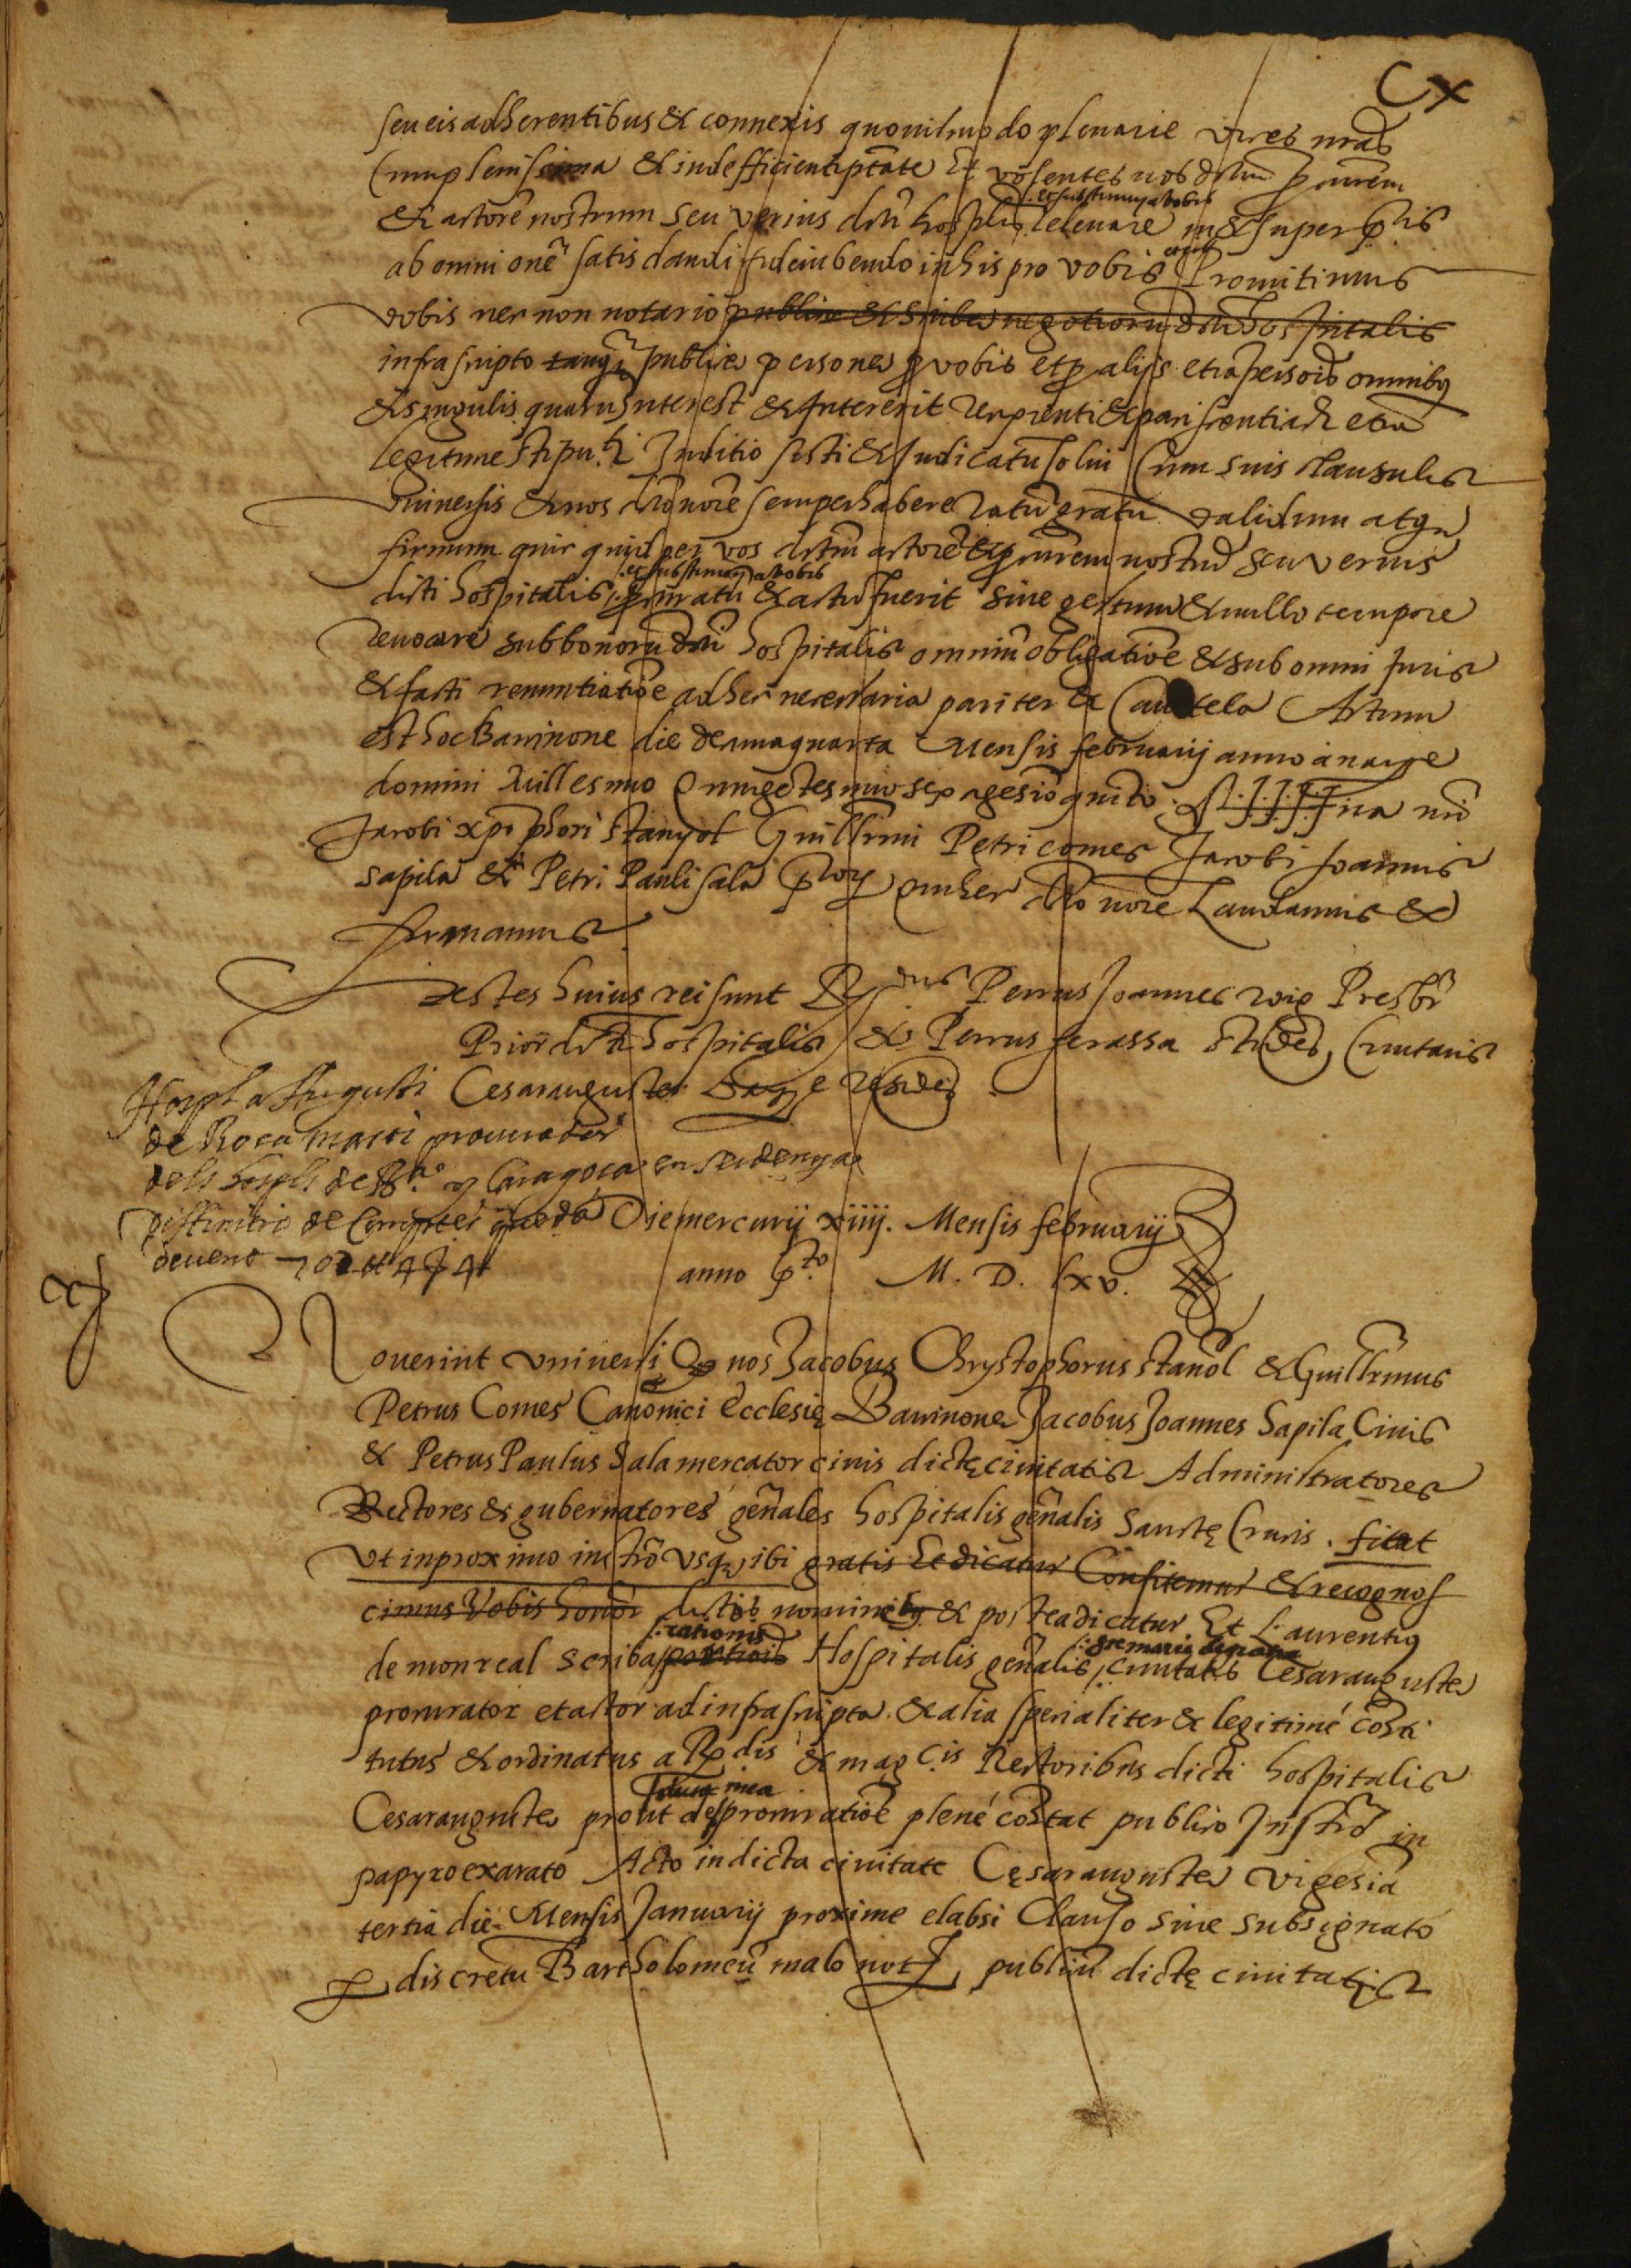 CX
seu eis adherentibus & connexis quovismodo plenarie vices nr̃as
Cum plenissima & indefficienti ptãte Et volentes vos dictum procurem
.et substituend a vobis
& actorẽ nostrum seu verius dicti hosplis relevare in & super p̃tis
ab omni onẽ satis dandi fideiubendo in his pro vobis Promitimus
vobis nec non notario publico & scribe negotiorũ dicti hospitalis
infrascripto tanq̃ publice persone p vobis et p alijs etiã persois omnibus
& singulis quarũ interest & intererit recipienti & paciscenti ac etiã
legitime stipu.ti Juditio sisti & Judicatũ solvi Cum suis clausulis
universis & nos dicto noĩe semper habere ratũ gratũ validum atque
firmum quicquid per vos dictum actorẽ & procurem nostrum seu verius
.et substituend a vobis
dicti hospitalis procuratũ & actũ fuerit sive gestum & nullo tempore
revocare sub bonorũ dicti hospitalis omniũ obligatiõe & sub omni Juris
& facti renuntiatiõe ad hec necessaria pariter & Cautela Actum
est hoc Barcinone die decima quarta Mensis februarij anno a nat.e
domini Millesimo Quingẽtesimo sexagesimo quinto Sig J.J.J.J na nri
Jacobi xpõphori stanyol Guillrmi Petri comes Jacobi Joannis
sapila & Petri Pauli sala p̃tor qui hec dicto noĩe Laudamus &
firmamus
Testes huius rei sunt R.dus Petrus Joannes roig Presbr̃
Prior dicti hospitalis & Petrus ferassa studẽs, Civitatis
Cesarauguste Bar.e residẽs
Hospl a Augusti
de Roca Marti procurador
dels hospls de Bna y Caragoca en serdenya
Diffinitio de Comptes que da
devent
Die mercurij xiiij. Mensis februarij
anno p.to M. D. lxv.
Noverint universi Q nos Jacobus Chrystophorus stanõl & Guillrmus
Petrus Comes Canonici Ecclesię Barcinone Jacobus Joannes Sapila Civis
& Petrus Paulus Sala mercator civis dictę civitatis Administratores
Rectores & gubernatores gẽnales hospitalis gẽnalis Sanctę Crucis. fiat
ut in proximo instrõ usq, ibi gratis Et dicatur Confitemur & recognos
cimus Vobis honor dictis nominibus & postea dicatur Et Laurentiũ
.rationis .nre marie de gratia
de monreal scriba portionis Hospitalis gẽnalis, civitatis Cesarauguste
procurator et actor ad infrascripta & alia specialiter & legitimé cõsti
tutus & ordinatus a R.dis & mag.cis Rectoribus dicti hospitalis
dicta mea
Cesarauguste prout de procuratiõe plené cõstat publico Instrõ in
papyro exarato Acto in dicta civitate Cęsarauguste vigesia
tertia die Mensis Januarij proxime elabsi Clauso sive subsignato
p discretũ Bartholomeũ malo not., publicũ dictę civitatis